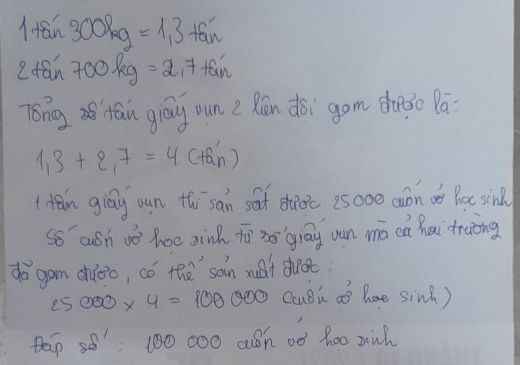 1 tấn 300kg = 1,3 tấn
2 tấn 700kg = 2,7 tấn
Tổng số tấn giấy vụn 2 liên đội gom được là:
1,3 + 2,7 = 4 (tấn)
1 tấn giấy vụn thì sản sất được 25000 cuốn vở học sinh
Số cuốn vở học sinh từ số giấy vụn mà cả hai trường
đã gom được, có thể sản xuất được:
25 000 x 4 = 100 000 (cuốn vở học sinh)
Đáp số: 100 000 cuốn vở học sinh